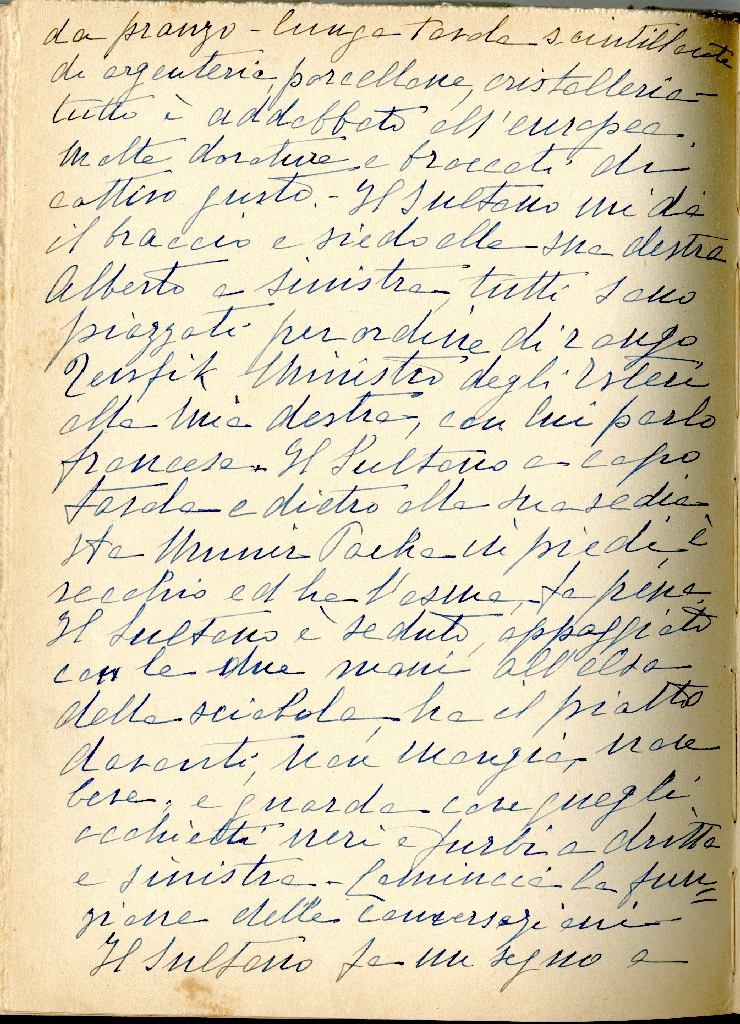 da pranzo - lunga tavola scintillante
di argenteria, porcellane, cristalleria -
tutto è addobbato all'europea,
molte dorature e broccati di
cattivo gusto. - Il Sultano mi dà
il braccio e siedo alla sua destra
Alberto a sinistra, tutti sono
piazzati per ordine di rango
Tewfik Ministro degli Esteri
alla mia destra, con lui parlo
francese. Il Sultano a capo
tavola e dietro alla sua sedia
sta Munir Pacha in piedi, è
vecchio ed ha l'asma, fa pena.
Il Sultano è seduto, appoggiato
con le due mani all'elsa
della sciabola, ha il piatto
davanti, non mangia, non
beve, e guarda con quegli
occhietti neri e furbi a dritta
e sinistra - Comincia la fun=
zione delle conversazioni
Il Sultano fa un segno a